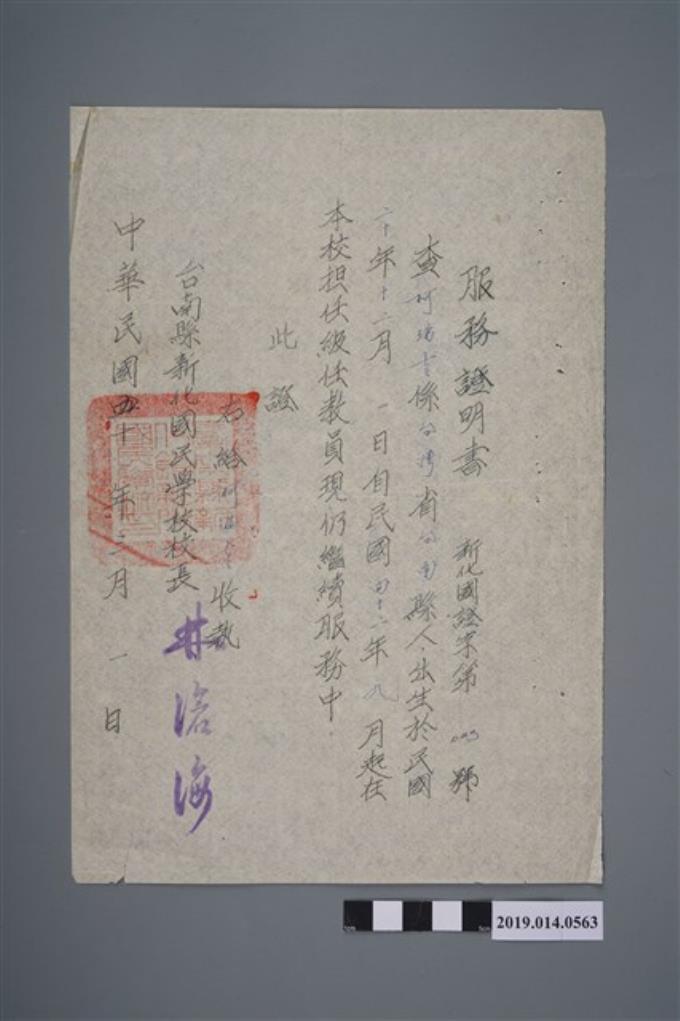 服務證明書
新化國證字第 號
查柯 係台灣省台南縣人,出生於民國
二十年十二月一日自民國四十二年九月起在
本校担任級任教員現仍繼續服務中.
此證
右給柯 收執
台南縣新化國民學校校長
林滄海
中華民國五十年二月一日
2019.014.0563